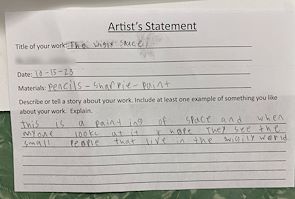 Artist's Statement
Title of your work: The space!
Date: 10-15-23
Materials: pencils - sharpie - paint
Describe or tell a story about your work. Include at least one example of something you like
about your work. Explain.
this is a painting of space and when
looks at it I hope they see the
small people that live in the world